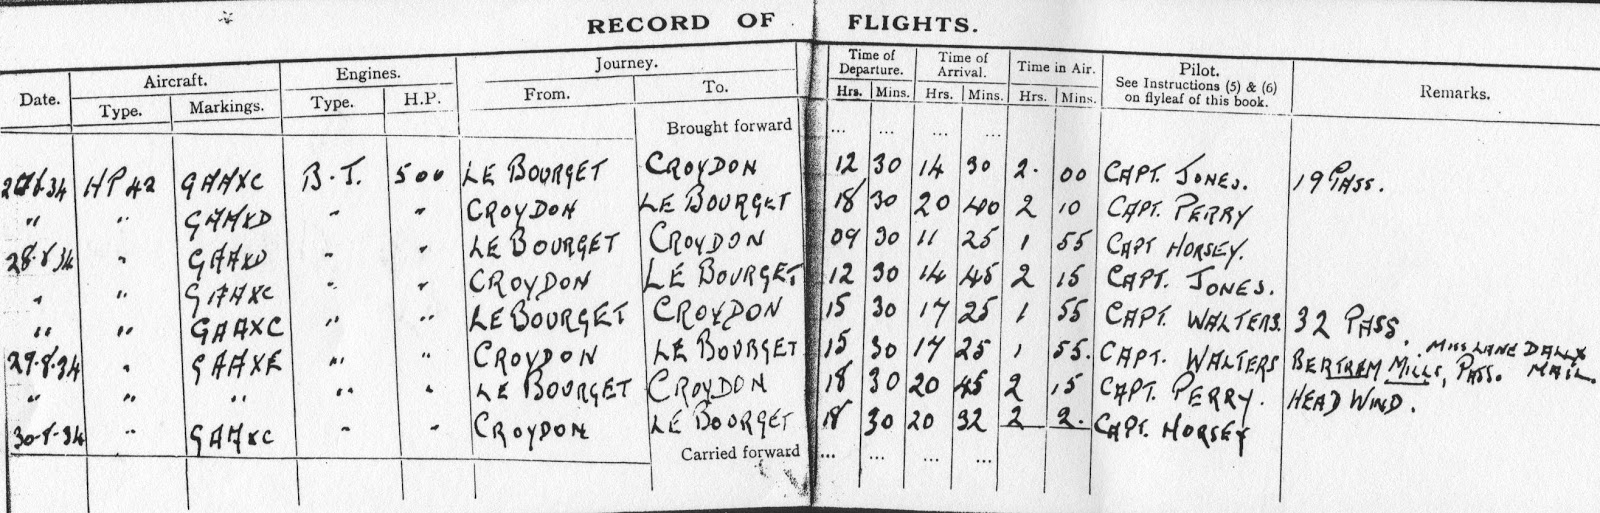 RECORD OF FLIGHTS.
Date. Aircraft. Engines. Journey. Time of Departure. Time of Arrival. Time in Air. Pilot. See Instructions (5) & (6) on flyleaf of this book. Remarks.
Type. Markings. Type. H.P. From. To. Hrs. Mins. Hrs. Mins. Hrs. Mins.
Brought forward ... ... ... ...
27.8.34 HP42 GAAXC B.J. 500 LE BOURGET CROYDON 12 30 14 30 2. 00 CAPT. JONES. 19 PASS.
" " GAAXD " " CROYDON LE BOURGET 18 30 20 40 2 10 CAPT. PERRY
28.8.34 " GAAXD " " LE BOURGET CROYDON 09 30 11 25 1 55 CAPT HORSEY.
" " GAAXC " " CROYDON LE BOURGET 12 30 14 45 2 15 CAPT. JONES.
" " GAAXC " " LE BOURGET CROYDON 15 30 17 25 1 55 CAPT. WALTERS. 32 PASS.
29.8.34 " GAAXE " " CROYDON LE BOURGET 15 30 17 25 1 55. CAPT. WALTERS BERTREM MILLS, PASS. MISS LANE DAILY MAIL.
" " " " " LE BOURGET CROYDON 18 30 20 45 2 15 CAPT. PERRY. HEAD WIND.
30.8.34 " GAAXC " " CROYDON LE BOURGET 18 30 20 32 2 2. CAPT. HORSEY
Carried forward ... ... ... ...